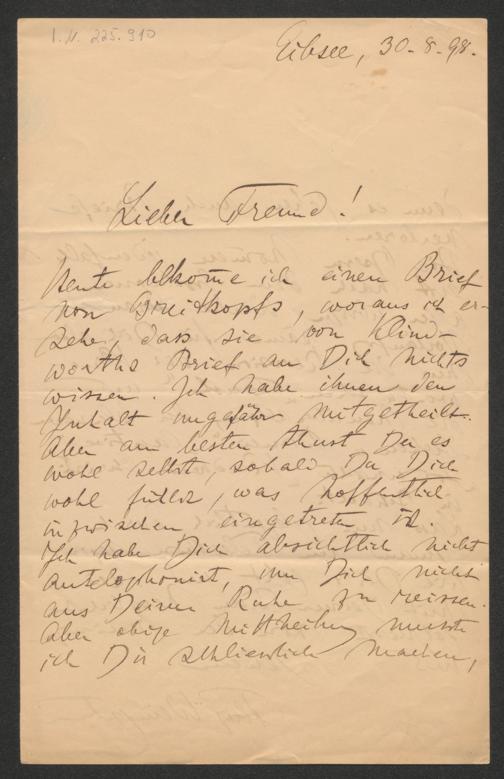 I.N. 225.910
Eibsee, 30-8-98.
Lieber Freund!
Heute bekom̄e ich einen Brief
von Breitkopfs, woraus ich er-
sehe, dass sie von Klind-
worths Brief an Dich nichts
wissen. Ich habe ihnen den
Inhalt ungefähr mitgetheilt.
Aber am besten thust Du es
wohl selbst, sobald Du Dich
wohl fühlst, was hoffentlich
inzwischen eingetreten ist.
Ich habe Dich absichtlich nicht
antelephonirt, um Dich nicht
aus Deiner Ruhe zu reissen.
Aber obige Mittheilung musste
ich Dir schliesslich machen,